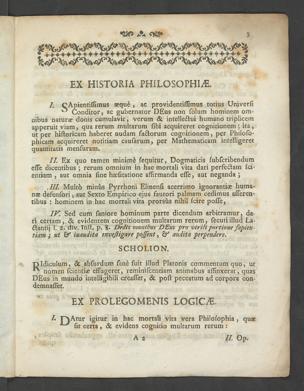 3
EX HISTORIA PHILOSOPHIÆ.
I. SApientissimus æquè, ac providentissimus totius Universi
Conditor, ac gubernator DEus non solum hominem om-
nibus naturæ donis cumulavit; verum & intellectui humano triplicem
aperuit viam, qua rerum multarum sibi acquireret cognitionem; ita,
ut per historicam haberet nudam factorum cognitionem, per Philoso-
phicam acquireret notitiam causarum, per Mathematicam intelligeret
quantitatis mensuram.
II. Ex quo tamen minimè sequitur, Dogmaticis subscribendum
esse dicentibus; rerum omnium in hac mortali vita dari perfectam sci-
entiam, aut omnia sine hæsitatione affirmanda esse, aut neganda;
III. Multò minùs Pyrrhoni Eliensi acerrimo ignorantiæ huma-
næ defensori, aut Sexto Empirico ejus fautori palmam cedimus asseren-
tibus: hominem in hac mortali vita prorsus nihil scire posse,
IV. Sed cum saniore hominum parte dicendum arbitramur, da-
ri certam, & evidentem cognitionem multarum rerum, favit illud La-
ctantij l. 2. div. Inst. p. 8. Dedit omnibus DEus pro virili portione sapien-
tiam; ut & inaudita investigare possent, & audita perpendere.
SCHOLION.
RIdiculum, & absurdum sanè fuit illud Platonis commentum quo, ut
nomen scientiæ effugeret, reminiscentiam animabus affinxerat, quas
DEus in mundo intelligibili creasset, & post peccatum ad corpora con-
demnasset.
EX PROLEGOMENIS LOGICÆ.
I. DAtur igitur in hac mortali vita vera Philosophia, quæ
sit certa, & evidens cognitio multarum rerum:
A 2 II. Op.